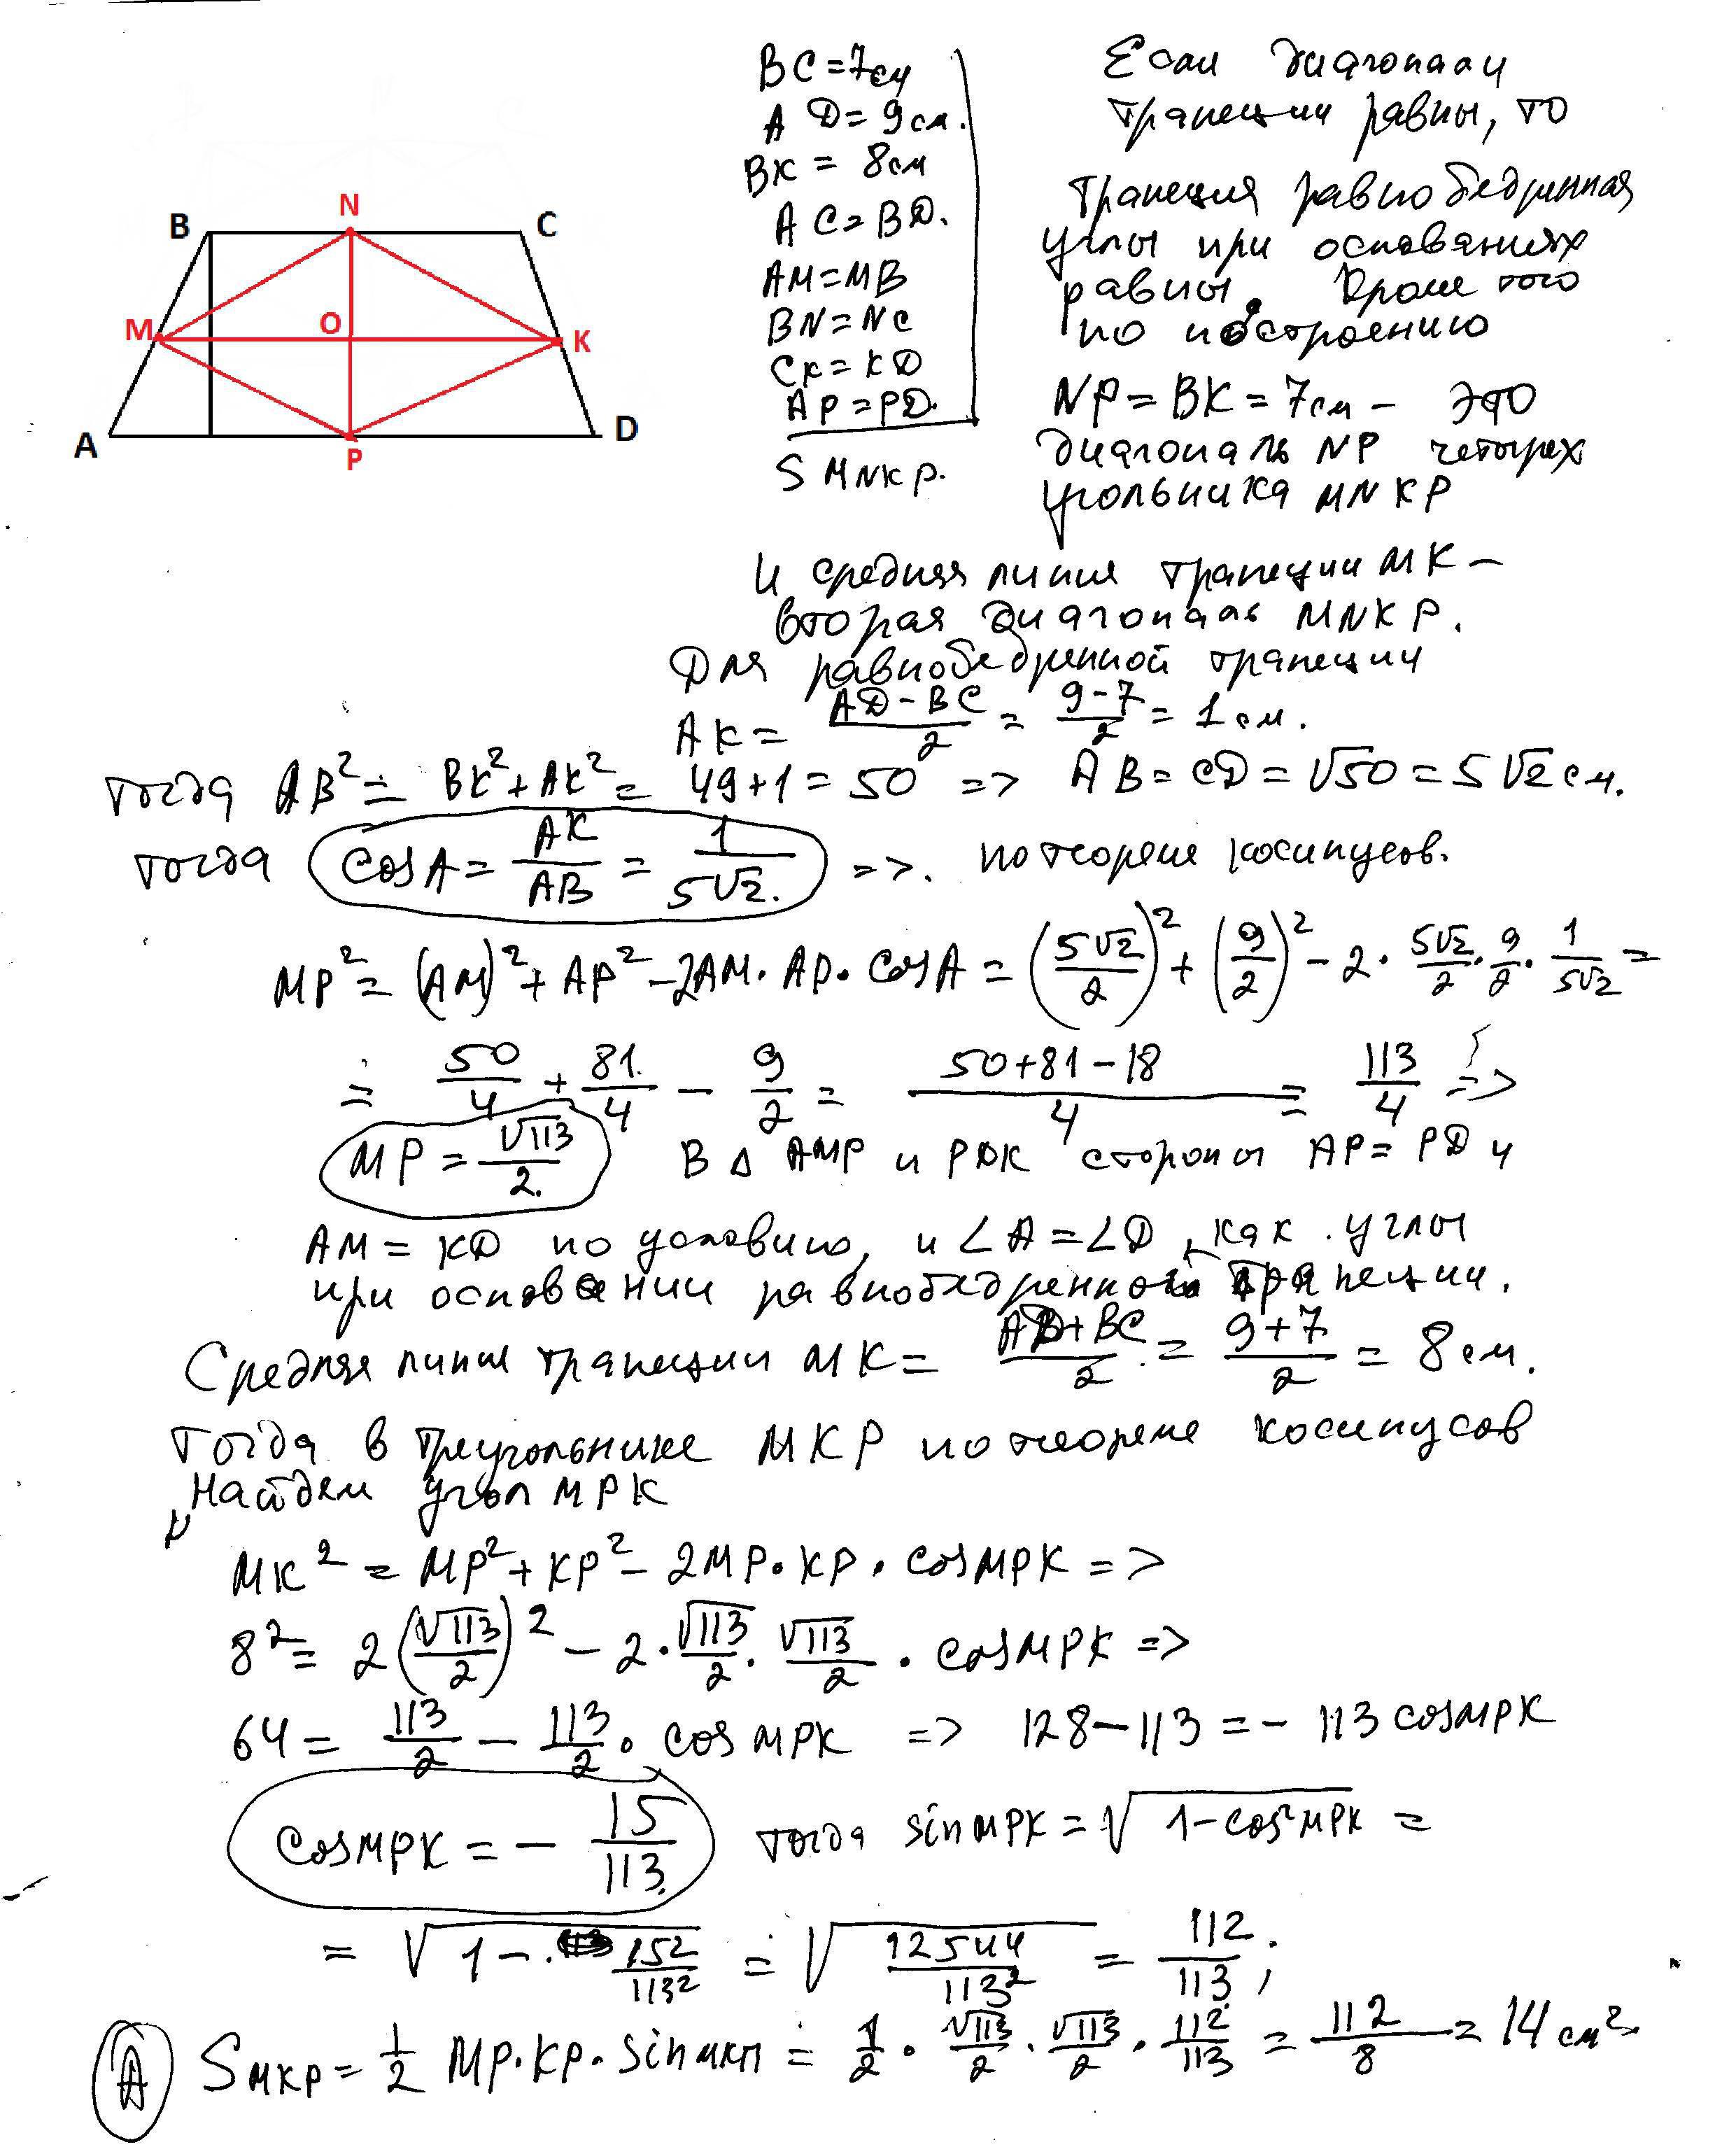 B
N
C
M
O
K
A
P
D
BC=7см
AD=9см.
BK = 8см
AC=BD.
AM=MB
BN=NC
CK=KD
AP=PD.
S MNKP.
Если диагонали
трапеции равны, то
трапеция равнобедренная
углы при основаниях
равны. Кроме того
по построению
NP=BK=7см – это
диагональ NP четырех
угольника MNKP
И средняя линия трапеции MK –
вторая диагональ MNKP.
Для равнобедренной трапеции
AK = (AD-BC)/2 = (9-7)/2 = 1см.
тогда AB² = BK²+AK² = 49+1=50 => AB=CD=√50=5√2см.
тогда cosA = AK/AB = 1/5√2. =>. по теореме косинусов.
MP² = (AM)²+AP²-2AM·AP·cosA = (5√2/2)² + (9/2)² - 2·5√2/2·9/2·1/5√2 =
= 50/4 + 81/4 - 9/2 = (50+81-18)/4 = 113/4 =>
MP = √113/2. В Δ AMP и PDK стороны AP=PD и
AM=KD по условию, и ∠A=∠D, как углы
при основании равнобедренной трапеции.
Средняя линия трапеции MK = (AD+BC)/2 = (9+7)/2 = 8см.
Тогда в треугольнике MKP по теореме косинусов
найдем угол MPK
MK² = MP²+KP²-2MP·KP·cosMPK =>
8² = 2(√113/2)² - 2·√113/2·√113/2·cosMPK =>
64 = 113/2 - 113/2·cosMPK => 128-113=-113cosMPK
cosMPK = - 15/113. тогда sinMPK = √(1-cos²MPK) =
= √(1-15²/113²) = √(12544/113²) = 112/113;
А SMKP = 1/2 MP·KP·sinМКП = 1/2·√113/2·√113/2·112/113 = 112/8 = 14см².